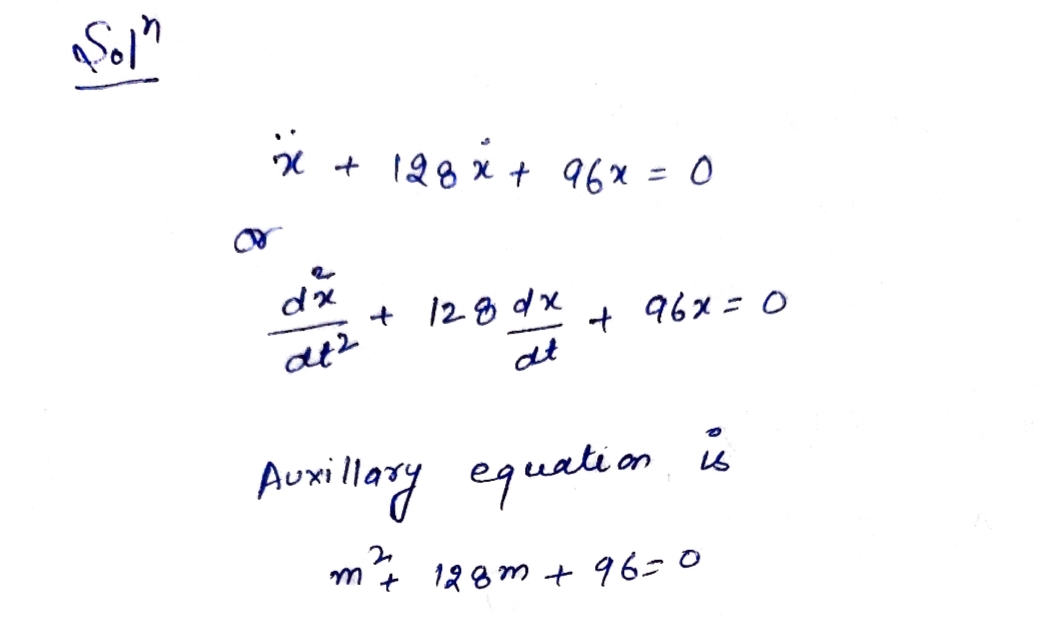 Solⁿ
ẍ + 128ẋ + 96x = 0
or
d²x/dt² + 128 dx/dt + 96x = 0
Auxillary equation is
m² + 128m + 96 = 0